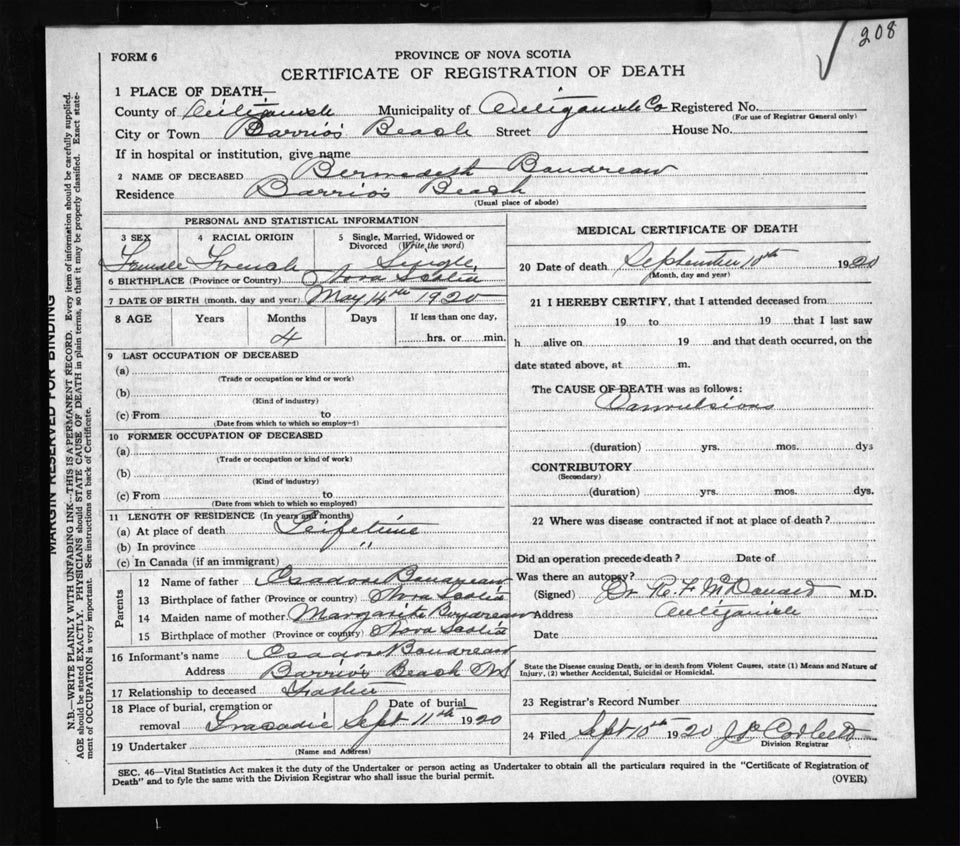 208
FORM 6
PROVINCE OF NOVA SCOTIA
CERTIFICATE OF REGISTRATION OF DEATH
1 PLACE OF DEATH—
County of Antigonish Municipality of Antigonish Co Registered No.
(For use of Registrar General only)
City or Town Barrios Beach Street House No.
If in hospital or institution, give name
2 NAME OF DECEASED Bernedeth Boudreau
Residence Barrios Beach
(Usual place of abode)
PERSONAL AND STATISTICAL INFORMATION
3 SEX 4 RACIAL ORIGIN 5 Single, Married, Widowed or Divorced (Write the word)
Female French Single
6 BIRTHPLACE (Province or Country) Nova Scotia
7 DATE OF BIRTH (month, day and year) May 14th 1920
8 AGE Years Months Days If less than one day,
4 hrs. or min.
9 LAST OCCUPATION OF DECEASED
(a)
(Trade or occupation or kind or work)
(b)
(Kind of industry)
(c) From to
(Date from which to which so employed)
10 FORMER OCCUPATION OF DECEASED
(a)
(Trade or occupation or kind of work)
(b)
(Kind of industry)
(c) From to
(Date from which to which so employed)
11 LENGTH OF RESIDENCE (In years and months)
(a) At place of death Leifetime
(b) In province "
(c) In Canada (if an immigrant)
Parents
12 Name of father Boudreau
13 Birthplace of father (Province or country) Nova Scotia
14 Maiden name of mother Margarite Boudreau
15 Birthplace of mother (Province or country) Nova Scotia
16 Informant's name Boudreau
Address Barrios Beach NS
17 Relationship to deceased Father
18 Place of burial, cremation or Date of burial
removal Tracadie Sept 11th 1920
19 Undertaker
(Name and Address)
MEDICAL CERTIFICATE OF DEATH
20 Date of death September 10th 1920
(Month, day and year)
21 I HEREBY CERTIFY, that I attended deceased from
19 to 19 that I last saw
h alive on 19 and that death occurred, on the
date stated above, at m.
The CAUSE OF DEATH was as follows:
Convulsions
(duration) yrs. mos. dys
CONTRIBUTORY
(Secondary)
(duration) yrs. mos. dys.
22 Where was disease contracted if not at place of death?
Did an operation precede death? Date of
Was there an autopsy?
(Signed) Dr. R. F McDonald M.D.
Address Antigonish
Date
State the Disease causing Death, or in death from Violent Causes, state (1) Means and Nature of
Injury, (2) whether Accidental, Suicidal or Homicidal.
23 Registrar's Record Number
24 Filed Sept 10th 1920
Division Registrar
SEC. 46—Vital Statistics Act makes it the duty of the Undertaker or person acting as Undertaker to obtain all the particulars required in the "Certificate of Registration of
Death" and to fyle the same with the Division Registrar who shall issue the burial permit.
(OVER)
MARGIN RESERVED FOR BINDING
N.B.—WRITE PLAINLY WITH UNFADING INK—THIS IS A PERMANENT RECORD. Every item of information should be carefully supplied.
AGE should be stated EXACTLY. PHYSICIANS should STATE CAUSE OF DEATH in plain terms, so that it may be properly classified. Exact state-
ment of OCCUPATION is very important. See instructions on back of Certificate.